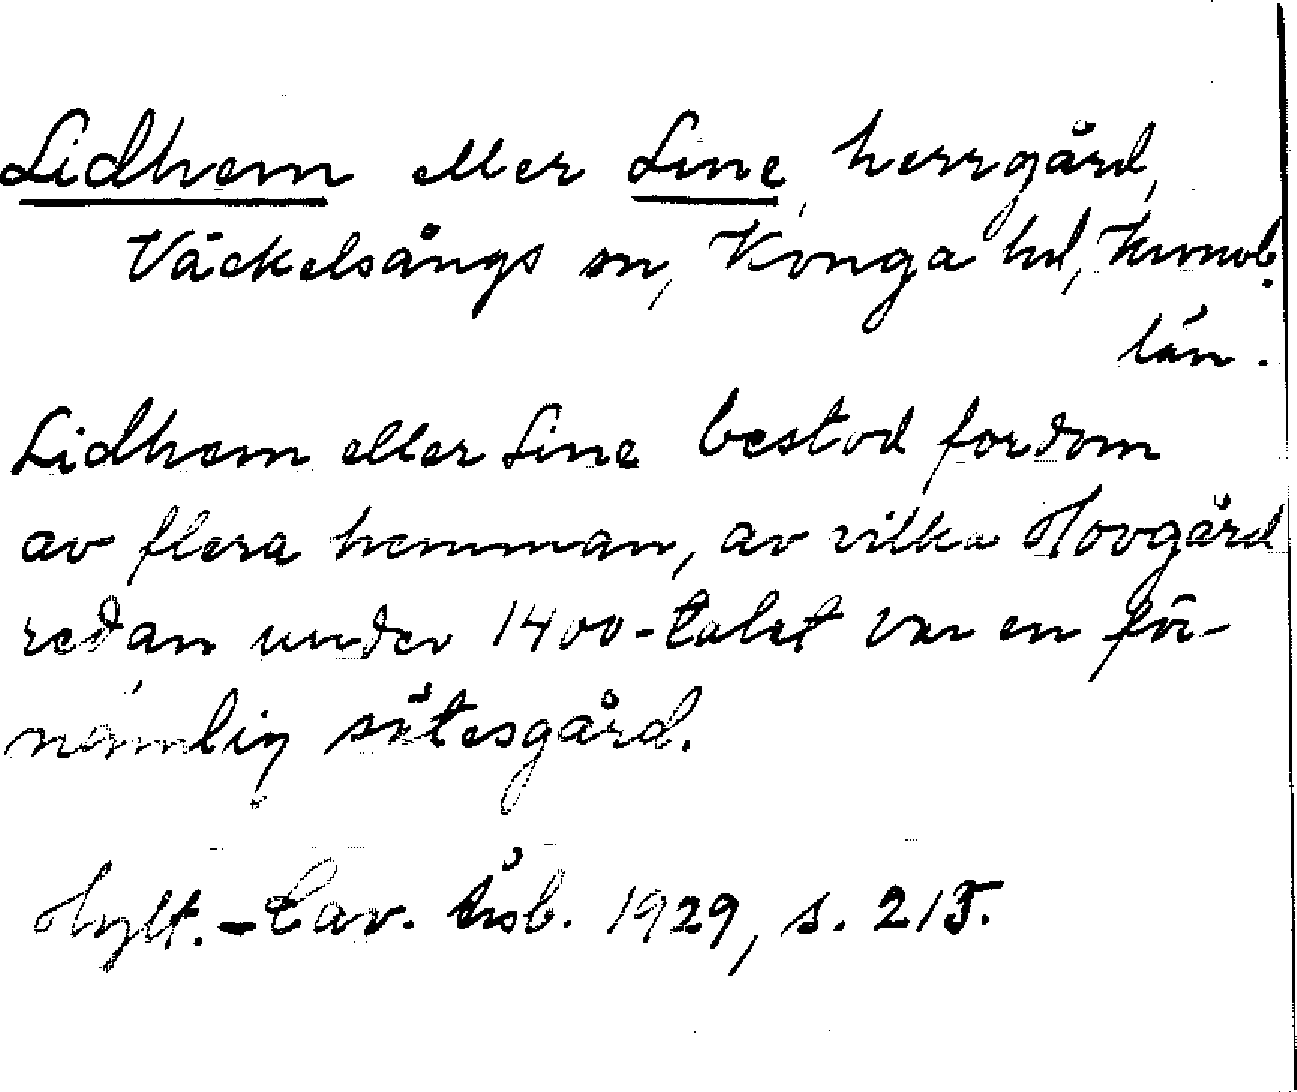 Lidhem eller Line, herrgård,
Väckelsångs sn, Konga hd, Kronob.
län.
Lidhem eller Line bestod fordom
av flera hemman, av vilka Hovgård
redan under 1400-talet var en för-
nämlig sätesgård.
Hylt.-Cav. årsb. 1929, s. 215.